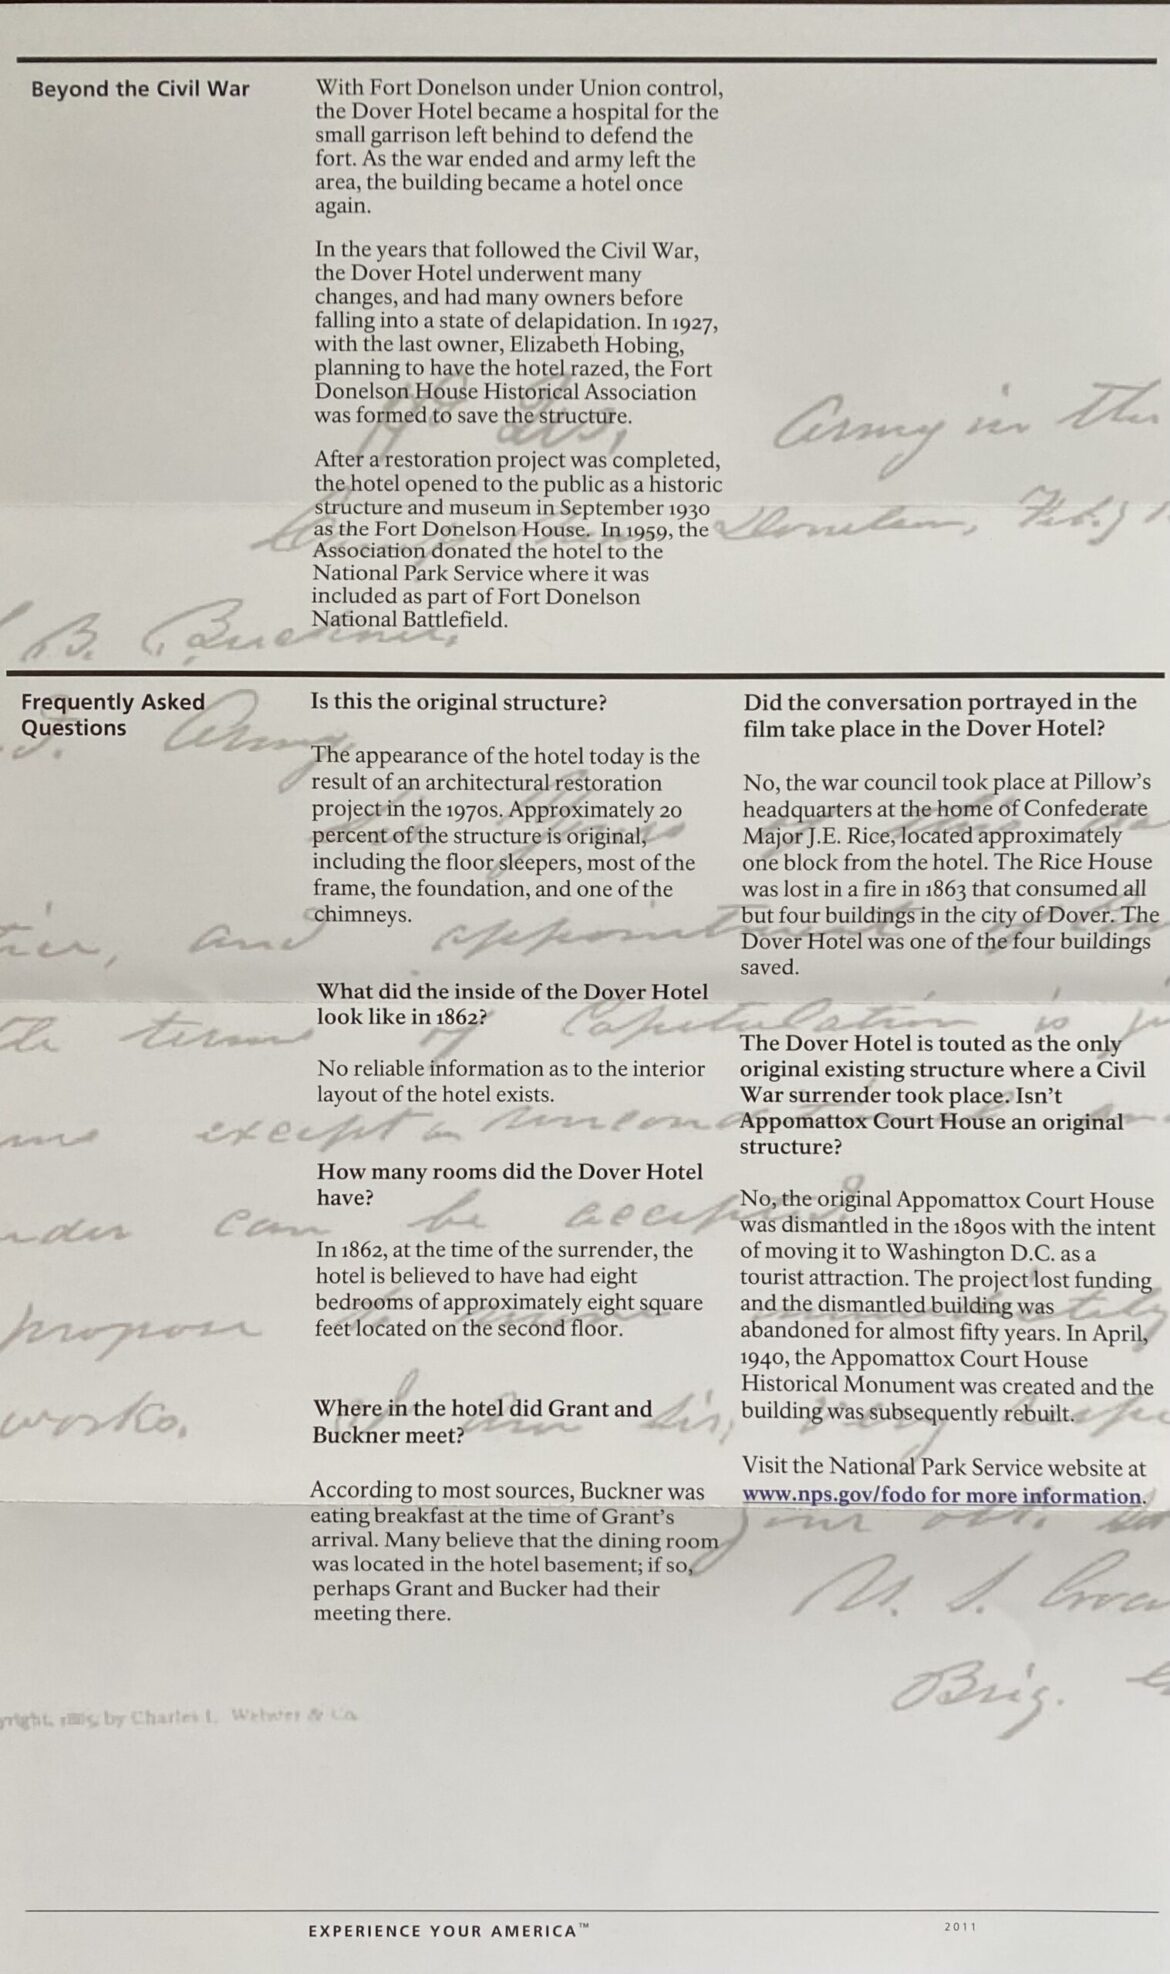 Beyond the Civil War
With Fort Donelson under Union control,
the Dover Hotel became a hospital for the
small garrison left behind to defend the
fort. As the war ended and army left the
area, the building became a hotel once
again.
In the years that followed the Civil War,
the Dover Hotel underwent many
changes, and had many owners before
falling into a state of delapidation. In 1927,
with the last owner, Elizabeth Hobing,
planning to have the hotel razed, the Fort
Donelson House Historical Association
was formed to save the structure.
After a restoration project was completed,
the hotel opened to the public as a historic
structure and museum in September 1930
as the Fort Donelson House. In 1959, the
Association donated the hotel to the
National Park Service where it was
included as part of Fort Donelson
National Battlefield.
Army in the
Donelson, Feb.
B. Buckner,
Frequently Asked
Questions
Army
Is this the original structure?
The appearance of the hotel today is the
result of an architectural restoration
project in the 1970s. Approximately 20
percent of the structure is original,
including the floor sleepers, most of the
frame, the foundation, and one of the
chimneys.
What did the inside of the Dover Hotel
look like in 1862?
No reliable information as to the interior
layout of the hotel exists.
How many rooms did the Dover Hotel
have?
In 1862, at the time of the surrender, the
hotel is believed to have had eight
bedrooms of approximately eight square
feet located on the second floor.
Where in the hotel did Grant and
Buckner meet?
According to most sources, Buckner was
eating breakfast at the time of Grant's
arrival. Many believe that the dining room
was located in the hotel basement; if so,
perhaps Grant and Bucker had their
meeting there.
Did the conversation portrayed in the
film take place in the Dover Hotel?
No, the war council took place at Pillow's
headquarters at the home of Confederate
Major J.E. Rice, located approximately
one block from the hotel. The Rice House
was lost in a fire in 1863 that consumed all
but four buildings in the city of Dover. The
Dover Hotel was one of the four buildings
saved.
The Dover Hotel is touted as the only
original existing structure where a Civil
War surrender took place. Isn't
Appomattox Court House an original
structure?
No, the original Appomattox Court House
was dismantled in the 1890s with the intent
of moving it to Washington D.C. as a
tourist attraction. The project lost funding
and the dismantled building was
abandoned for almost fifty years. In April,
1940, the Appomattox Court House
Historical Monument was created and the
building was subsequently rebuilt.
Visit the National Park Service website at
www.nps.gov/fodo for more information.
and appointment of
terms of Capitulation is
except an
can be accepted
propose to move
works. I am Sir, very
U. S.
Brig.
by Charles L. Webster & Co.
EXPERIENCE YOUR AMERICA™
2011